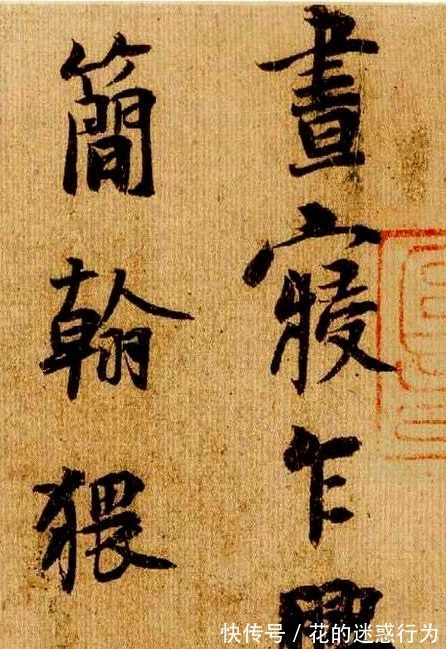 晝寢乍興
簡翰猥
快传号/花的迷惑行为